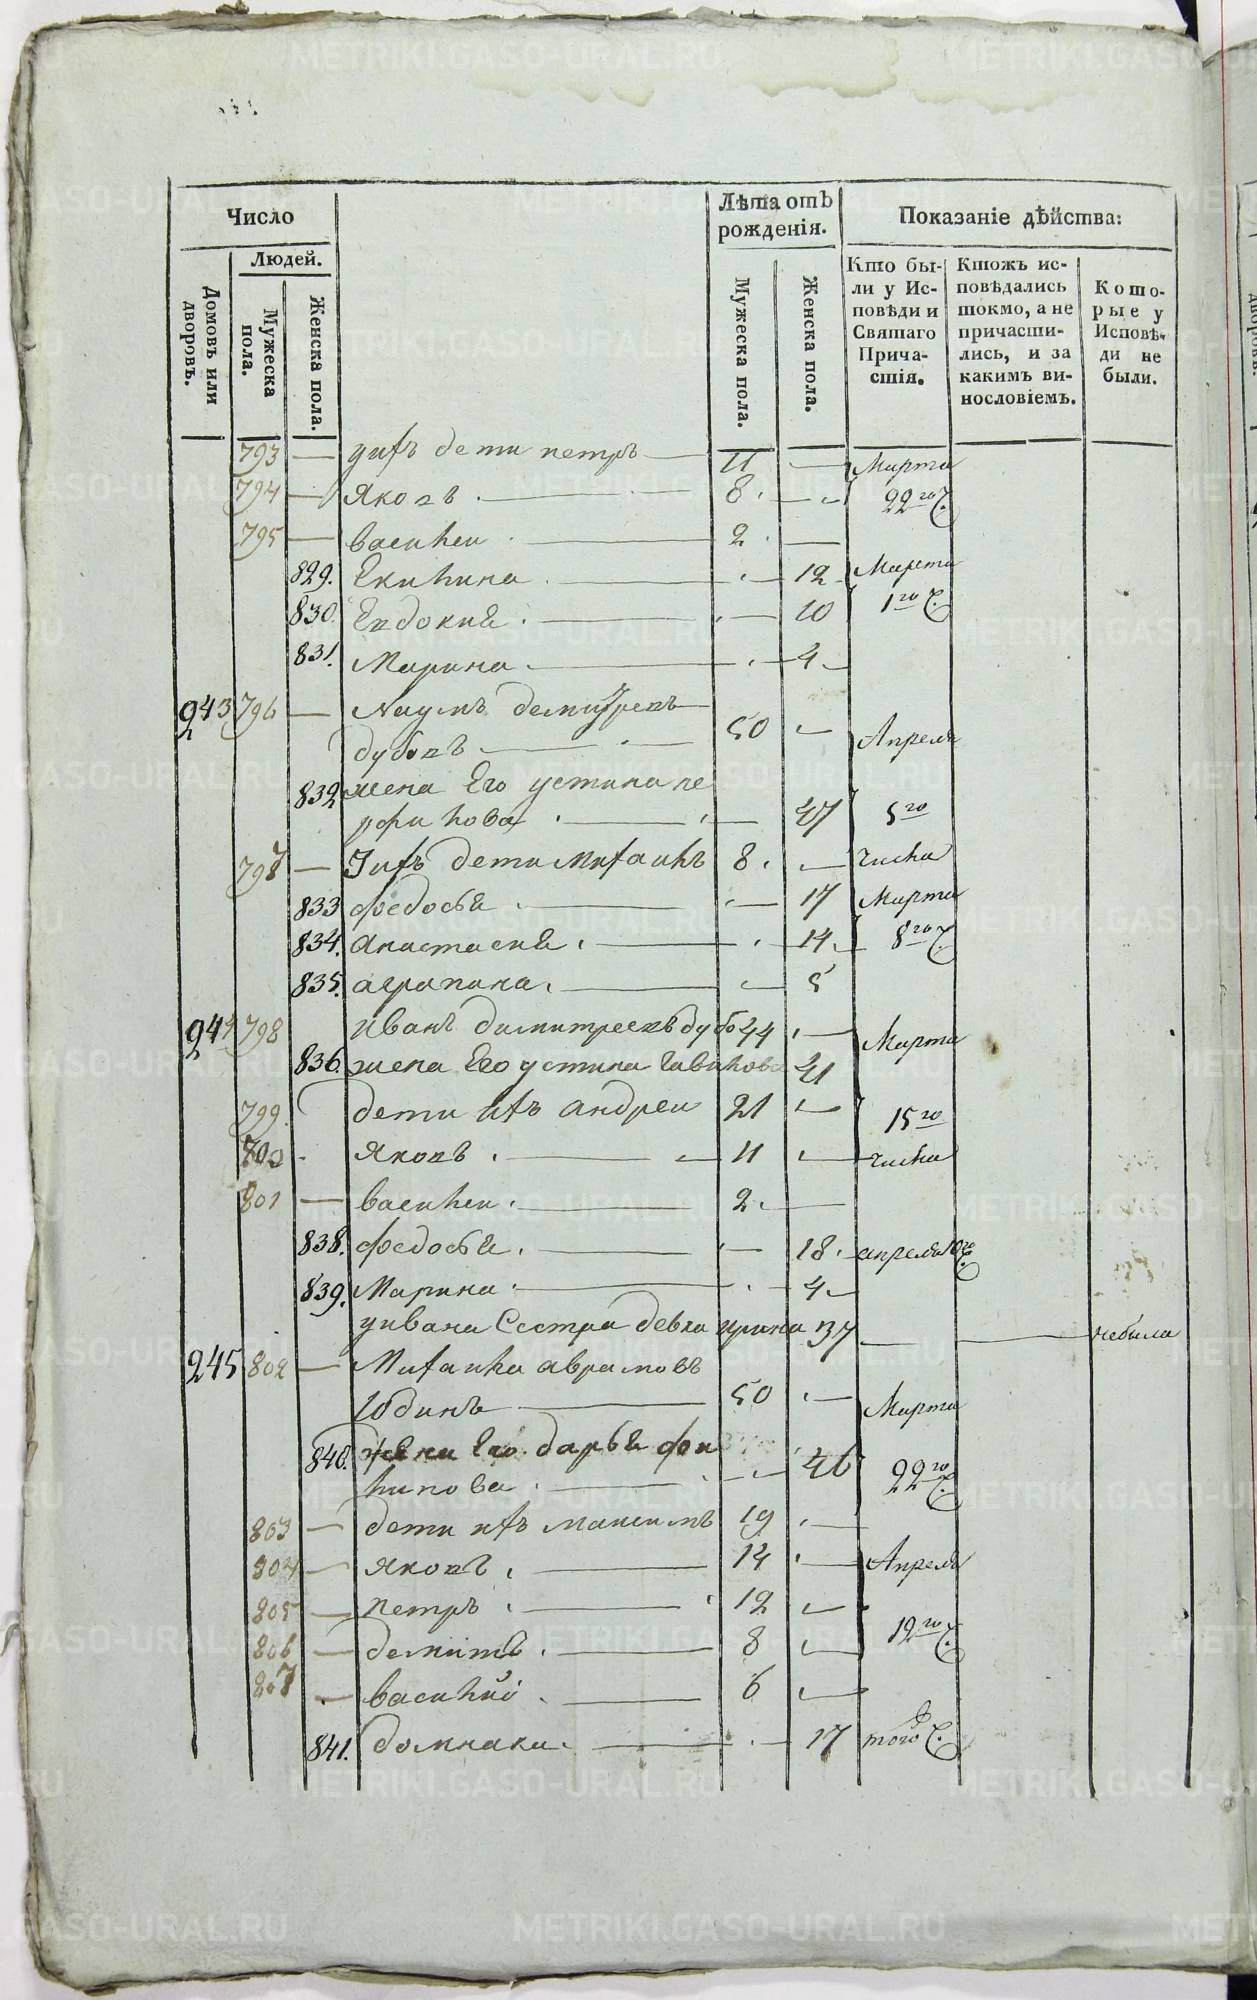 Число
Лѣта отъ рожденія.
Показаніе дѣйства:
Людей.
Домовъ или дворовъ.
Мужеска пола.
Женска пола.
Мужеска пола.
Женска пола.
Кто бы-
ли у Ис-
повѣди и
Святаго
Прича-
стія.
Ктожъ ис-
повѣдались
токмо, а не
причасти-
лись, и за
какимъ ви-
нословіемъ.
Кото-
рые у
Исповѣ-
ди не
были.
793 — уихъ дети петръ — 11 — Марта
794 — Яковъ — 8 — 22го ч.
795 — василеи — 2 —
829. Екилина — 12 Марта
830. Евдокия — 10 1го ч.
831. Марина — 4
243 796 — Наумъ демитревъ
дубовъ — 50 — Апреля
832 жена Его устина пе
рфилова — 47 5го
797 — Уихъ дети михаилъ 8 — числа
833 федосья — 17 Марта
834. анастасия — 14 8го ч.
835. агрипина — 5
244 798 иванъ димитреевъ дубо 44 — Марта
836. жена Его устина Савилова 41
799. дети ихъ андреи 21 — 15го
800 Яковъ — 11 — числа
801 — василеи — 2 —
838. федосья — 18 апреля 10го ч.
839. Марина — 4
уивана Сестра девка ирина 37 — небыла
245 802 — Михаила аврамовъ
Юдинъ — 50 — Марта
840. жена Его дарья фи
липова — 46 22го ч.
803 — дети ихъ максимъ 19 —
804 — яковъ — 14 — Апреля
805 — петръ — 12 —
806 — демитъ — 8 — 19го ч.
807 — василий — 6 —
841. домника — 17 того ч.
METRIKI.GASO-URAL.RU